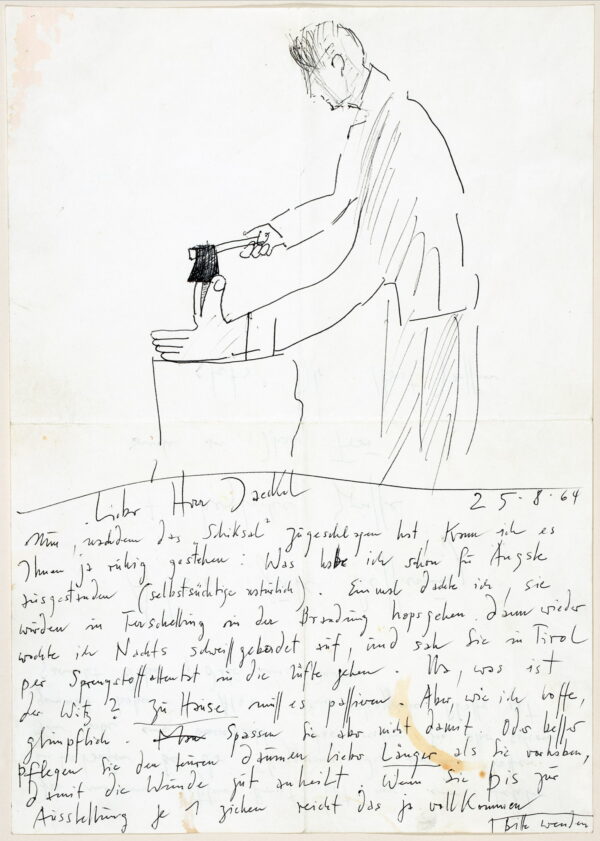 Lieber Herr Jaeckel 25.8.64
Nun, nachdem das „Schiksal" zugeschlagen hat, kann ich es
Ihnen ja ruhig gestehen: Was habe ich schon für Ängste
ausgestanden (selbstsüchtige natürlich). Einmal dachte ich, sie
würden in Terschelling in der Brandung hopsgehen, dann wieder
wachte ich Nachts schweißgebadet auf, und sah Sie in Tirol
per Sprengstoffattentat in die Lüfte gehen. Na, was ist
der Witz? Zu Hause muß es passieren. Aber, wie ich hoffe,
glimpflich. Spassen Sie aber nicht damit. Oder besser
pflegen Sie den teuren Däumen lieber Länger als Sie vorhaben,
damit die Wunde gut anheilt. Wenn Sie bis zur
Ausstellung je 1 ziehen reicht das ja vollkommen
bitte wenden